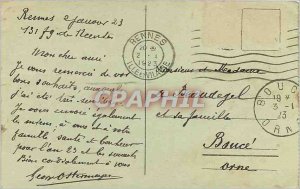 Rennes 2 janvier 23
131 fg de
Mon cher ami
Je vous remercie de vos
bons souhaits,
j'ai été
Je vous envoie également
les miens à vous et à votre
famille santé et bonheur
pour l'an 23 et les suivants
Bien cordialement à vous
RENNES
1923
ILLE-ET-VILAINE
Monsieur et Madame
et sa famille
Boucé
Orne
BOUCÉ
3-1
23
ORNE
CPARAMA.COM